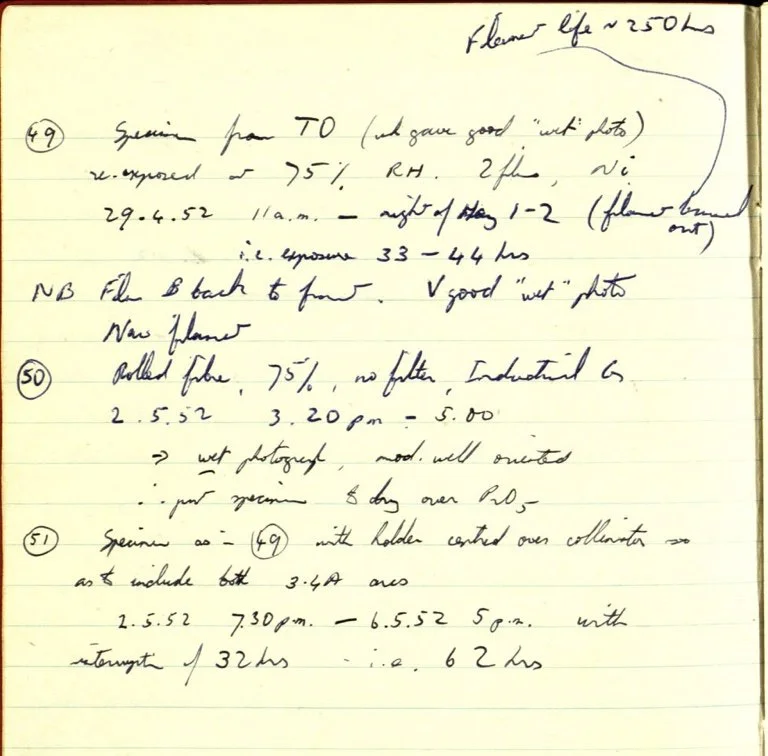 Filament life ~ 250 hrs
(49) Specimen from TO (wh gave good "wet" photo)
re-exposed at 75% RH. 2 films, Ni
29.4.52 11 a.m. — night of May 1-2 (filament burned
out)
i.e. exposure 33 – 44 hrs
NB Film B back to front. V good "wet" photo
New filament
(50) Rolled fibre, 75%, no filter, Industrial
2.5.52 3.20 pm – 5.00
⇒ wet photograph, mod. well oriented
∴ put specimen to dry over P2O5
(51) Specimen as in (49) with holder centred over collimator so
as to include both 3.4A arcs
2.5.52 7.30 p.m. — 6.5.52 5 p.m. with
interruption of 32 hrs - i.e. 62 hrs